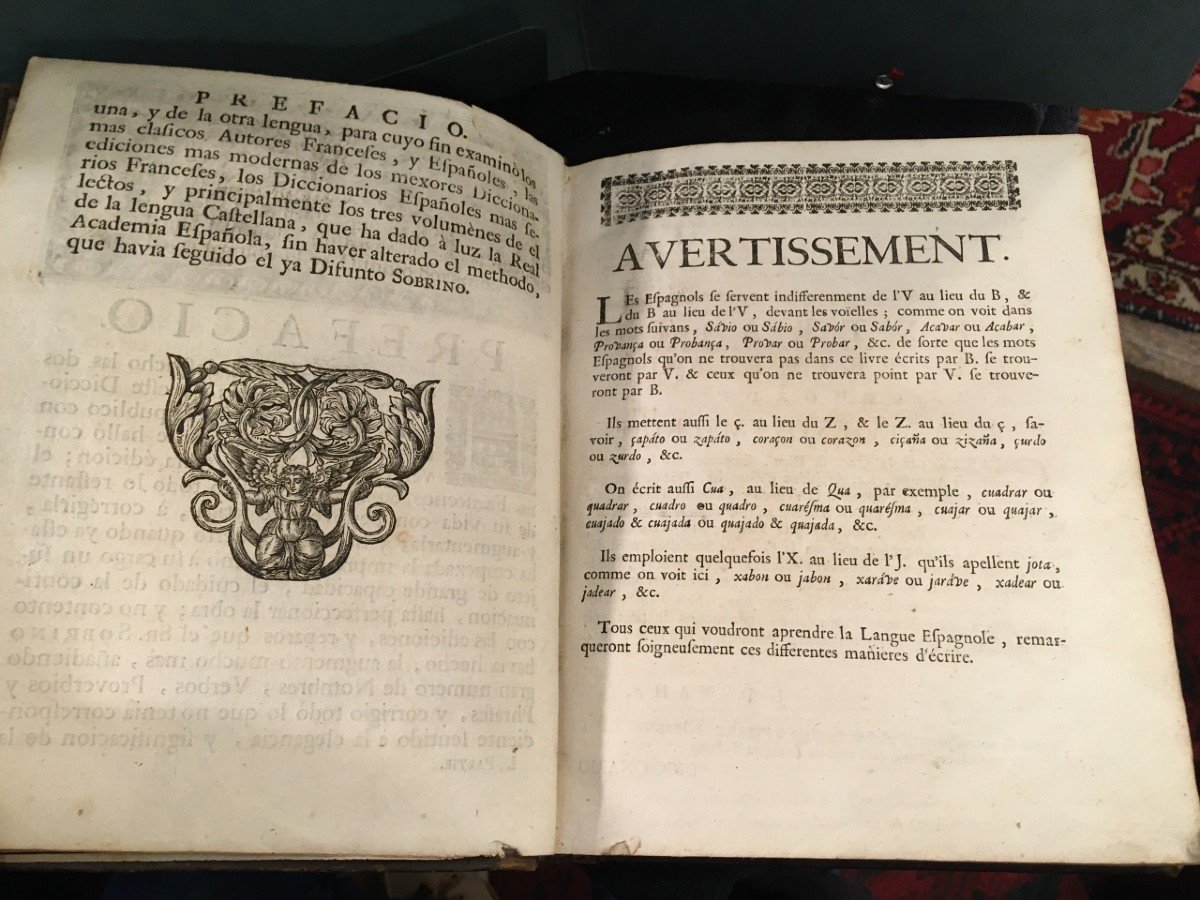 PREFACIO.
una, y de la otra lengua, para cuyo fin examinò los
mas claſicos Autores Franceſes, y Eſpañoles, las
ediciones mas modernas de los mexores Dicciona-
rios Franceſes, los Diccionarios Eſpañoles mas ſe-
lectos, y principalmente los tres volumènes de el
de la lengua Caſtellana, que ha dado à luz la Real
Academia Eſpañola, ſin haver alterado el methodo,
que havia ſeguido el ya Difunto SOBRINO.
AVERTISSEMENT.
LEs Eſpagnols ſe ſervent indifferenment de l'V au lieu du B, &
du B au lieu de l'V, devant les voielles; comme on voit dans
les mots ſuivans, Sávio ou Sábio, Savór ou Sabór, Acavar ou Acabar,
Provança ou Probança, Provar ou Probar, &c. de ſorte que les mots
Eſpagnols qu'on ne trouvera pas dans ce livre écrits par B. ſe trou-
veront par V. & ceux qu'on ne trouvera point par V. ſe trouve-
ront par B.
Ils mettent auſſi le ç. au lieu du Z, & le Z. au lieu du ç, ſa-
voir, çapáto ou zapáto, coraçon ou corazon, ciçaña ou zizaña, çurdo
ou zurdo, &c.
On écrit auſſi Cua, au lieu de Qua, par exemple, cuadrar ou
quadrar, cuadro ou quadro, cuaréſma ou quaréſma, cuajar ou quajar,
cuajado & cuajada ou quajado & quajada, &c.
Ils emploient quelquefois l'X. au lieu de l'J. qu'ils apellent jota,
comme on voit ici, xabon ou jabon, xaráve ou jaráve, xadear ou
jadear, &c.
Tous ceux qui voudront aprendre la Langue Eſpagnole, remar-
queront ſoigneuſement ces differentes mañieres d'écrire.